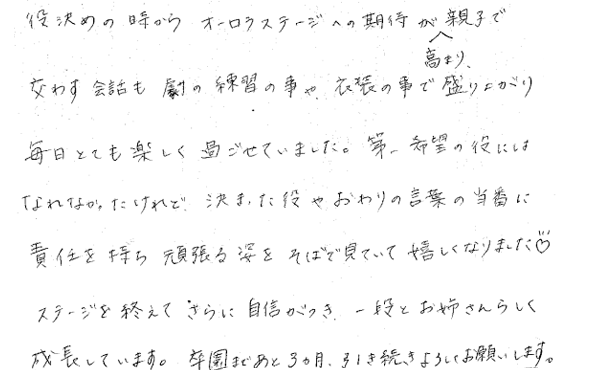 役決めの時から オーロラステージへの期待が高まり、親子で
交わす会話も 劇の練習の事や、衣装の事で盛り上がり
毎日とても楽しく過ごせていました。第一希望の役には
なれなかったけれど、決まった役やおわりの言葉の当番に
責任を持ち 頑張る姿を そばで見ていて 嬉しくなりました♡
ステージを終えて さらに自信がつき、一段とお姉さんらしく
成長しています。卒園まであと3カ月、引き続きよろしくお願いします。